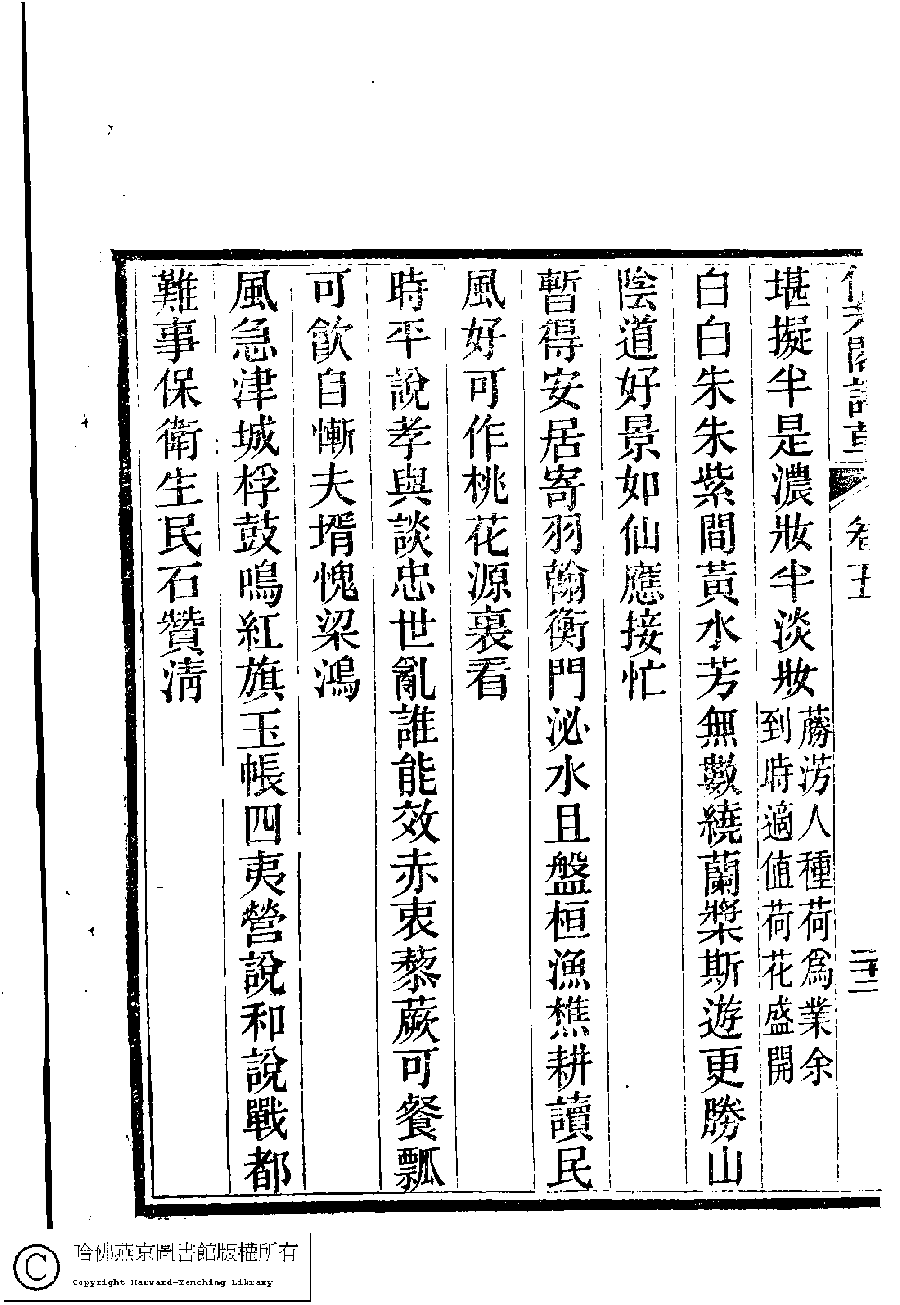 信芳閣詩草 卷五
堪擬半是濃妝半淡妝
蕂淓人種荷爲業余
到時適值荷花盛開
白白朱朱紫間黃水芳無數繞蘭槳斯遊更勝山
陰道好景如仙應接忙
暫得安居寄羽翰衡門泌水且盤桓漁樵耕讀民
風好可作桃花源裏看
時平說孝與談忠世亂誰能效赤衷藜蕨可餐瓢
可飮自慚夫壻愧梁鴻
風急津城桴鼓鳴紅旗玉帳四夷營說和說戰都
難事保衛生民石贊淸
哈佛燕京圖書館版權所有
Copyright Harvard-Yenching Library